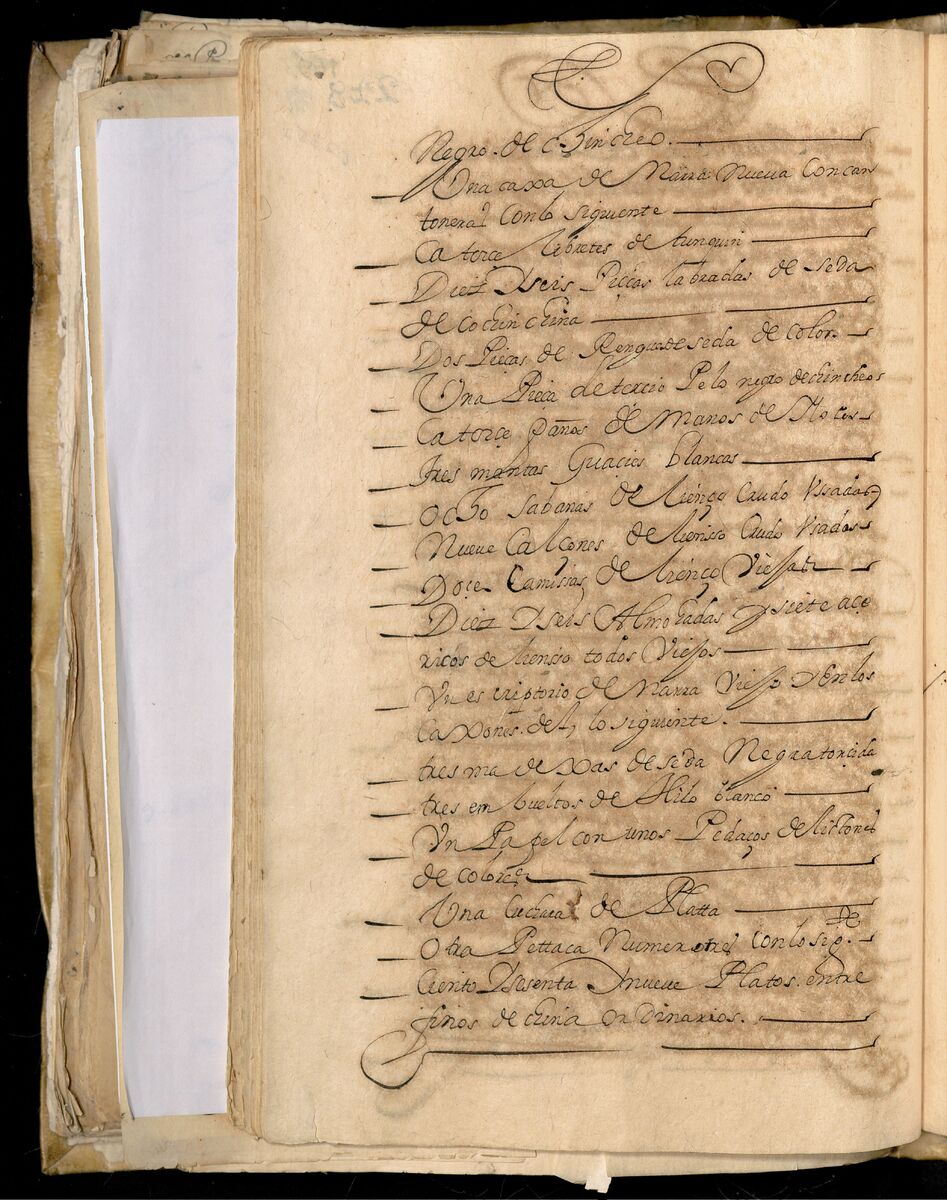 Negro. de chincheo.
Una caxa de Narra Nueva Con can
toneras Con lo siguiente
Catorce lebretes de tunquin
Diez Y seis Pieças labradas de seda
de Cochinchina
Dos Pieças de Rengue de seda de Color.
Una Pieça de tercio Pelo negro de chincheos
Catorce paños de Manos de Ylocos
tres mantas Guacias blancas
ocho sabanas de lienço Crudo Vssadas
Nueve Calçones de lienso Crudo Vsados
Doçe Camissas de lienço Viejas
Diez Y seis Almohadas Y siete açe
ricos de lienso todos Viejos
Vn escriptorio de Narra Viejo Y En los
Caxones. del, lo siguiente.
tres madexas de seda Negra torçida
tres embueltos de Hilo blanco
Vn Papel con unos Pedaços de listones
de colores
Una Cuchara de Platta
Otra Pettaca Numero tres Con lo sig.te
Ciento Y Sesenta Y nueve Platos. entre
finos de china Ordinarios.